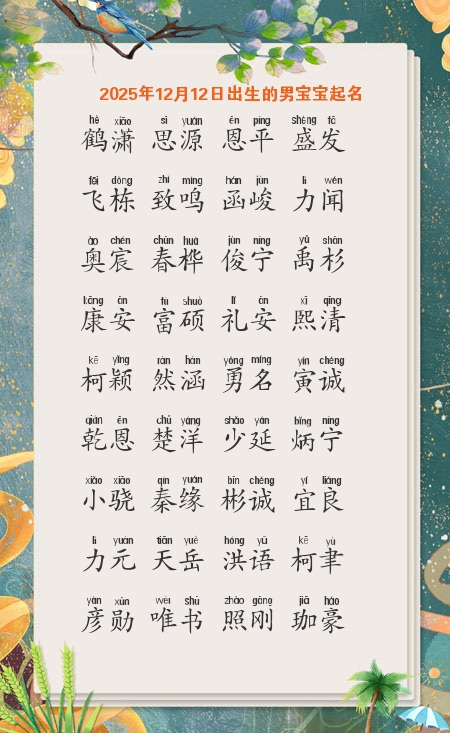 2025年12月12日出生的男宝宝起名
hè xiāo sī yuán ēn píng shèng fā
鹤潇 思源 恩平 盛发
fēi dòng zhì míng hán jùn lì wén
飞栋 致鸣 函峻 力闻
ào chén chūn huà jùn níng yǔ shān
奥宸 春桦 俊宁 禹杉
kāng ān fù shuò lǐ ān xī qīng
康安 富硕 礼安 熙清
kē yǐng rán hán yǒng míng yín chéng
柯颖 然涵 勇名 寅诚
qián ēn chǔ yáng shǎo yán bǐng níng
乾恩 楚洋 少延 炳宁
xiǎo xiāo qín yuán bīn chéng yí liáng
小骁 秦缘 彬诚 宜良
lì yuán tiān yuè hóng yǔ kē yù
力元 天岳 洪语 柯聿
yàn xūn wéi shū zhào gāng jiā háo
彦勋 唯书 照刚 珈豪